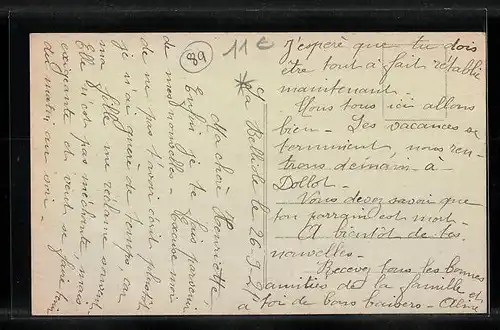 89
11 c
La Belliole le 26-9-21
Ma chère Henriette,
Enfin je te fais parvenir
de mes nouvelles - Excuse-moi
de ne pas t'avoir écrit plus tôt
je n'ai guère de temps, car
ma fille me réclame souvent
Elle n'est pas méchante, mais
exigeante et veut se faire tenir
du matin au soir -
J'espère que tu dois
être tout à fait rétabli
maintenant.
Nous tous ici allons
bien - Les vacances se
terminent, nous ren-
trons demain à
Dollot -
Vous devez savoir que
ton parrain est mort -
A bientôt de tes
nouvelles -
Recevez tous les bonnes
amitiés de la famille et
à toi de bons baisers - Aline